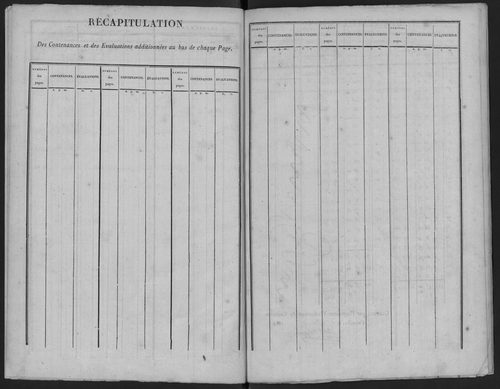 RÉCAPITULATION
Des Contenances et des Evaluations additionnées au bas de chaque Page.
NUMÉROS des pages. CONTENANCES. ÉVALUATIONS. NUMÉROS des pages. CONTENANCES. ÉVALUATIONS. NUMÉROS des pages. CONTENANCES. ÉVALUATIONS.
NUMÉROS des pages. CONTENANCES. ÉVALUATIONS. NUMÉROS des pages. CONTENANCES. ÉVALUATIONS. NUMÉROS des pages. CONTENANCES. ÉVALUATIONS.